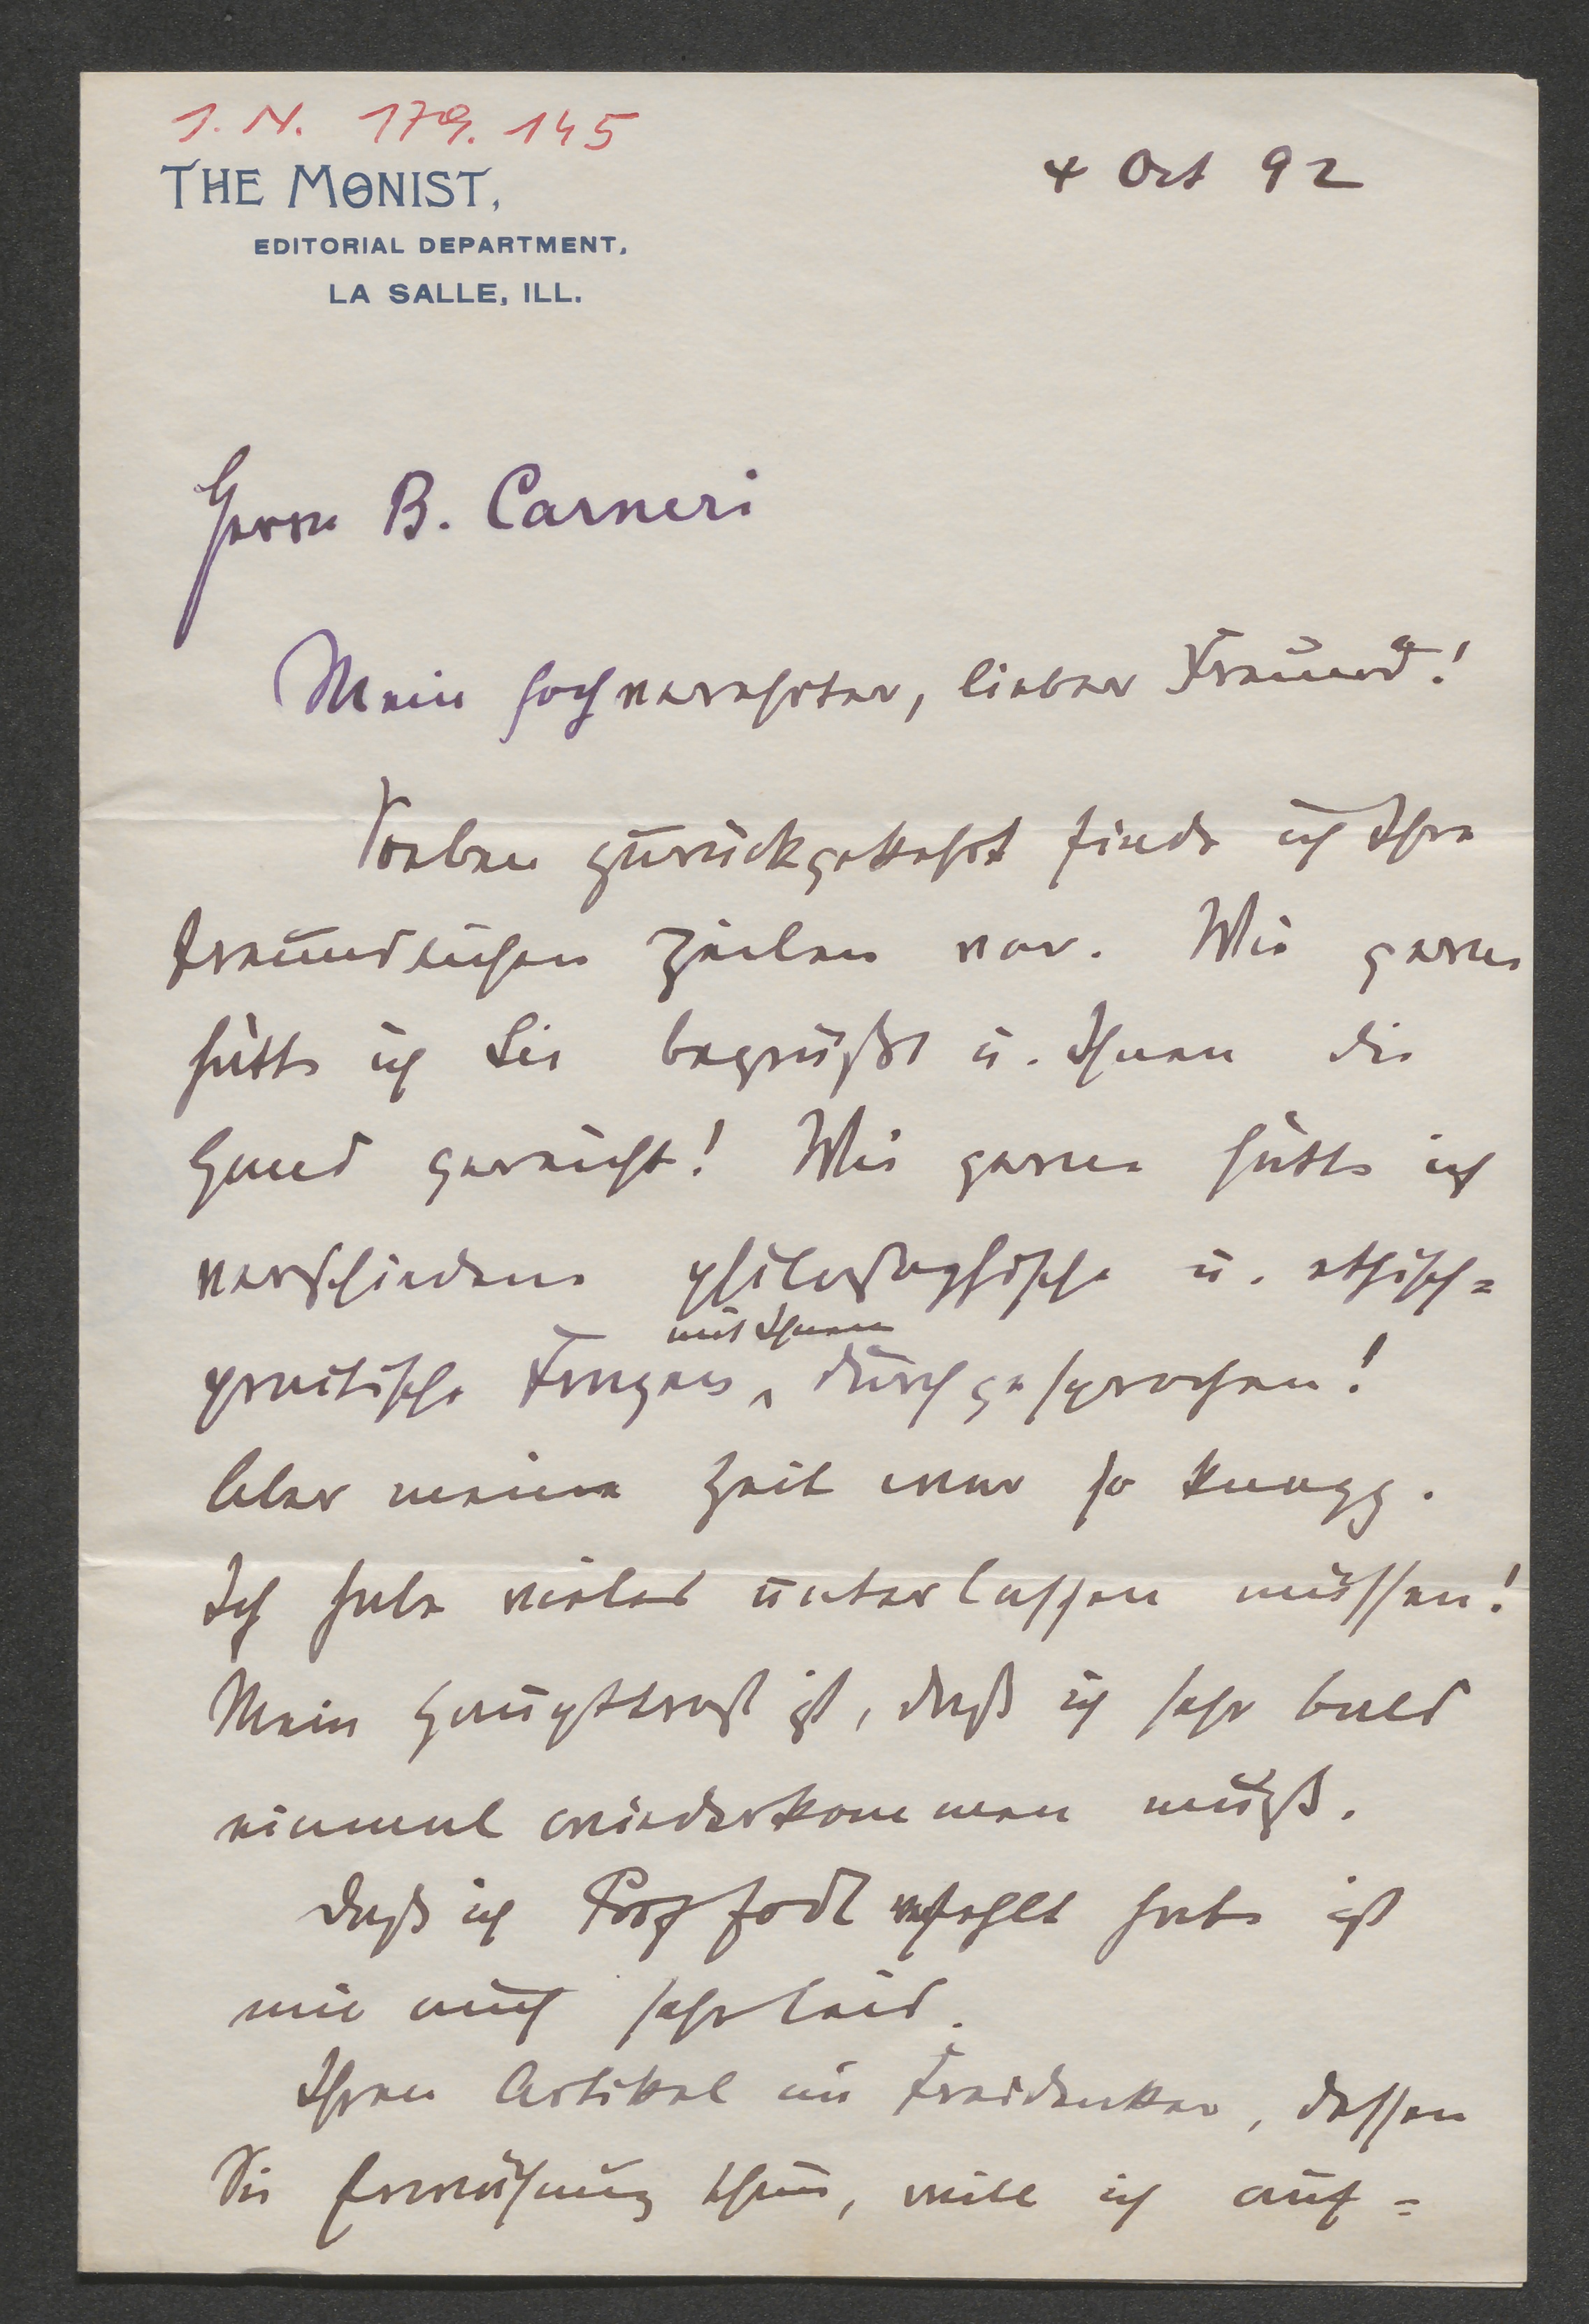 I. N. 179.145
THE MONIST,
EDITORIAL DEPARTMENT,
LA SALLE, ILL.
4 Oct 92
Herrn B. Carneri
Mein hochverehrter, lieber Freund!
Soeben zurückgekehrt finde ich Ihre
freundlichen Zeilen vor. Wie gerne
hätte ich Sie begrüßt u. Ihnen die
Hand gereicht! Wie gerne hätte ich
verschiedene philosophische u. ethisch=
mit Ihnen
practische Fragen durchgesprochen!
Aber meine Zeit war so knapp.
Ich habe vieles unterlassen müssen!
Mein Haupttrost ist, daß ich sehr bald
einmal wiederkommen muß.
Daß ich Prof Jodl verfehlt habe ist
mir auch sehr leid.
Ihren Artikel im Freidenker, dessen
Sie Erwähnung thun, will ich auf=